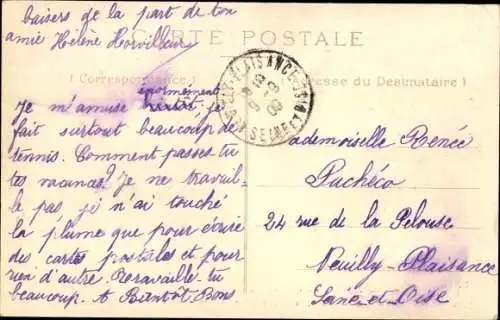 baisers de la part de ton
amie Hélène Horvilleur
CARTE POSTALE
(Correspondance)
(Adresse du Destinataire)
énormément
Je m'amuse bientôt, je
fait surtout beaucoup de
tennis. Comment passes tu
tes vacances? Je ne travail-
le pas, je n'ai touché
la plume que pour écrire
des cartes postales et pour
rien d'autre. travaille tu
beaucoup. A Bientôt. Bons
PLAISANCE
SEINE ET
Mademoiselle Renée
Pachéco
24 rue de la Pelouse
Neuilly-Plaisance
Seine-et-Oise